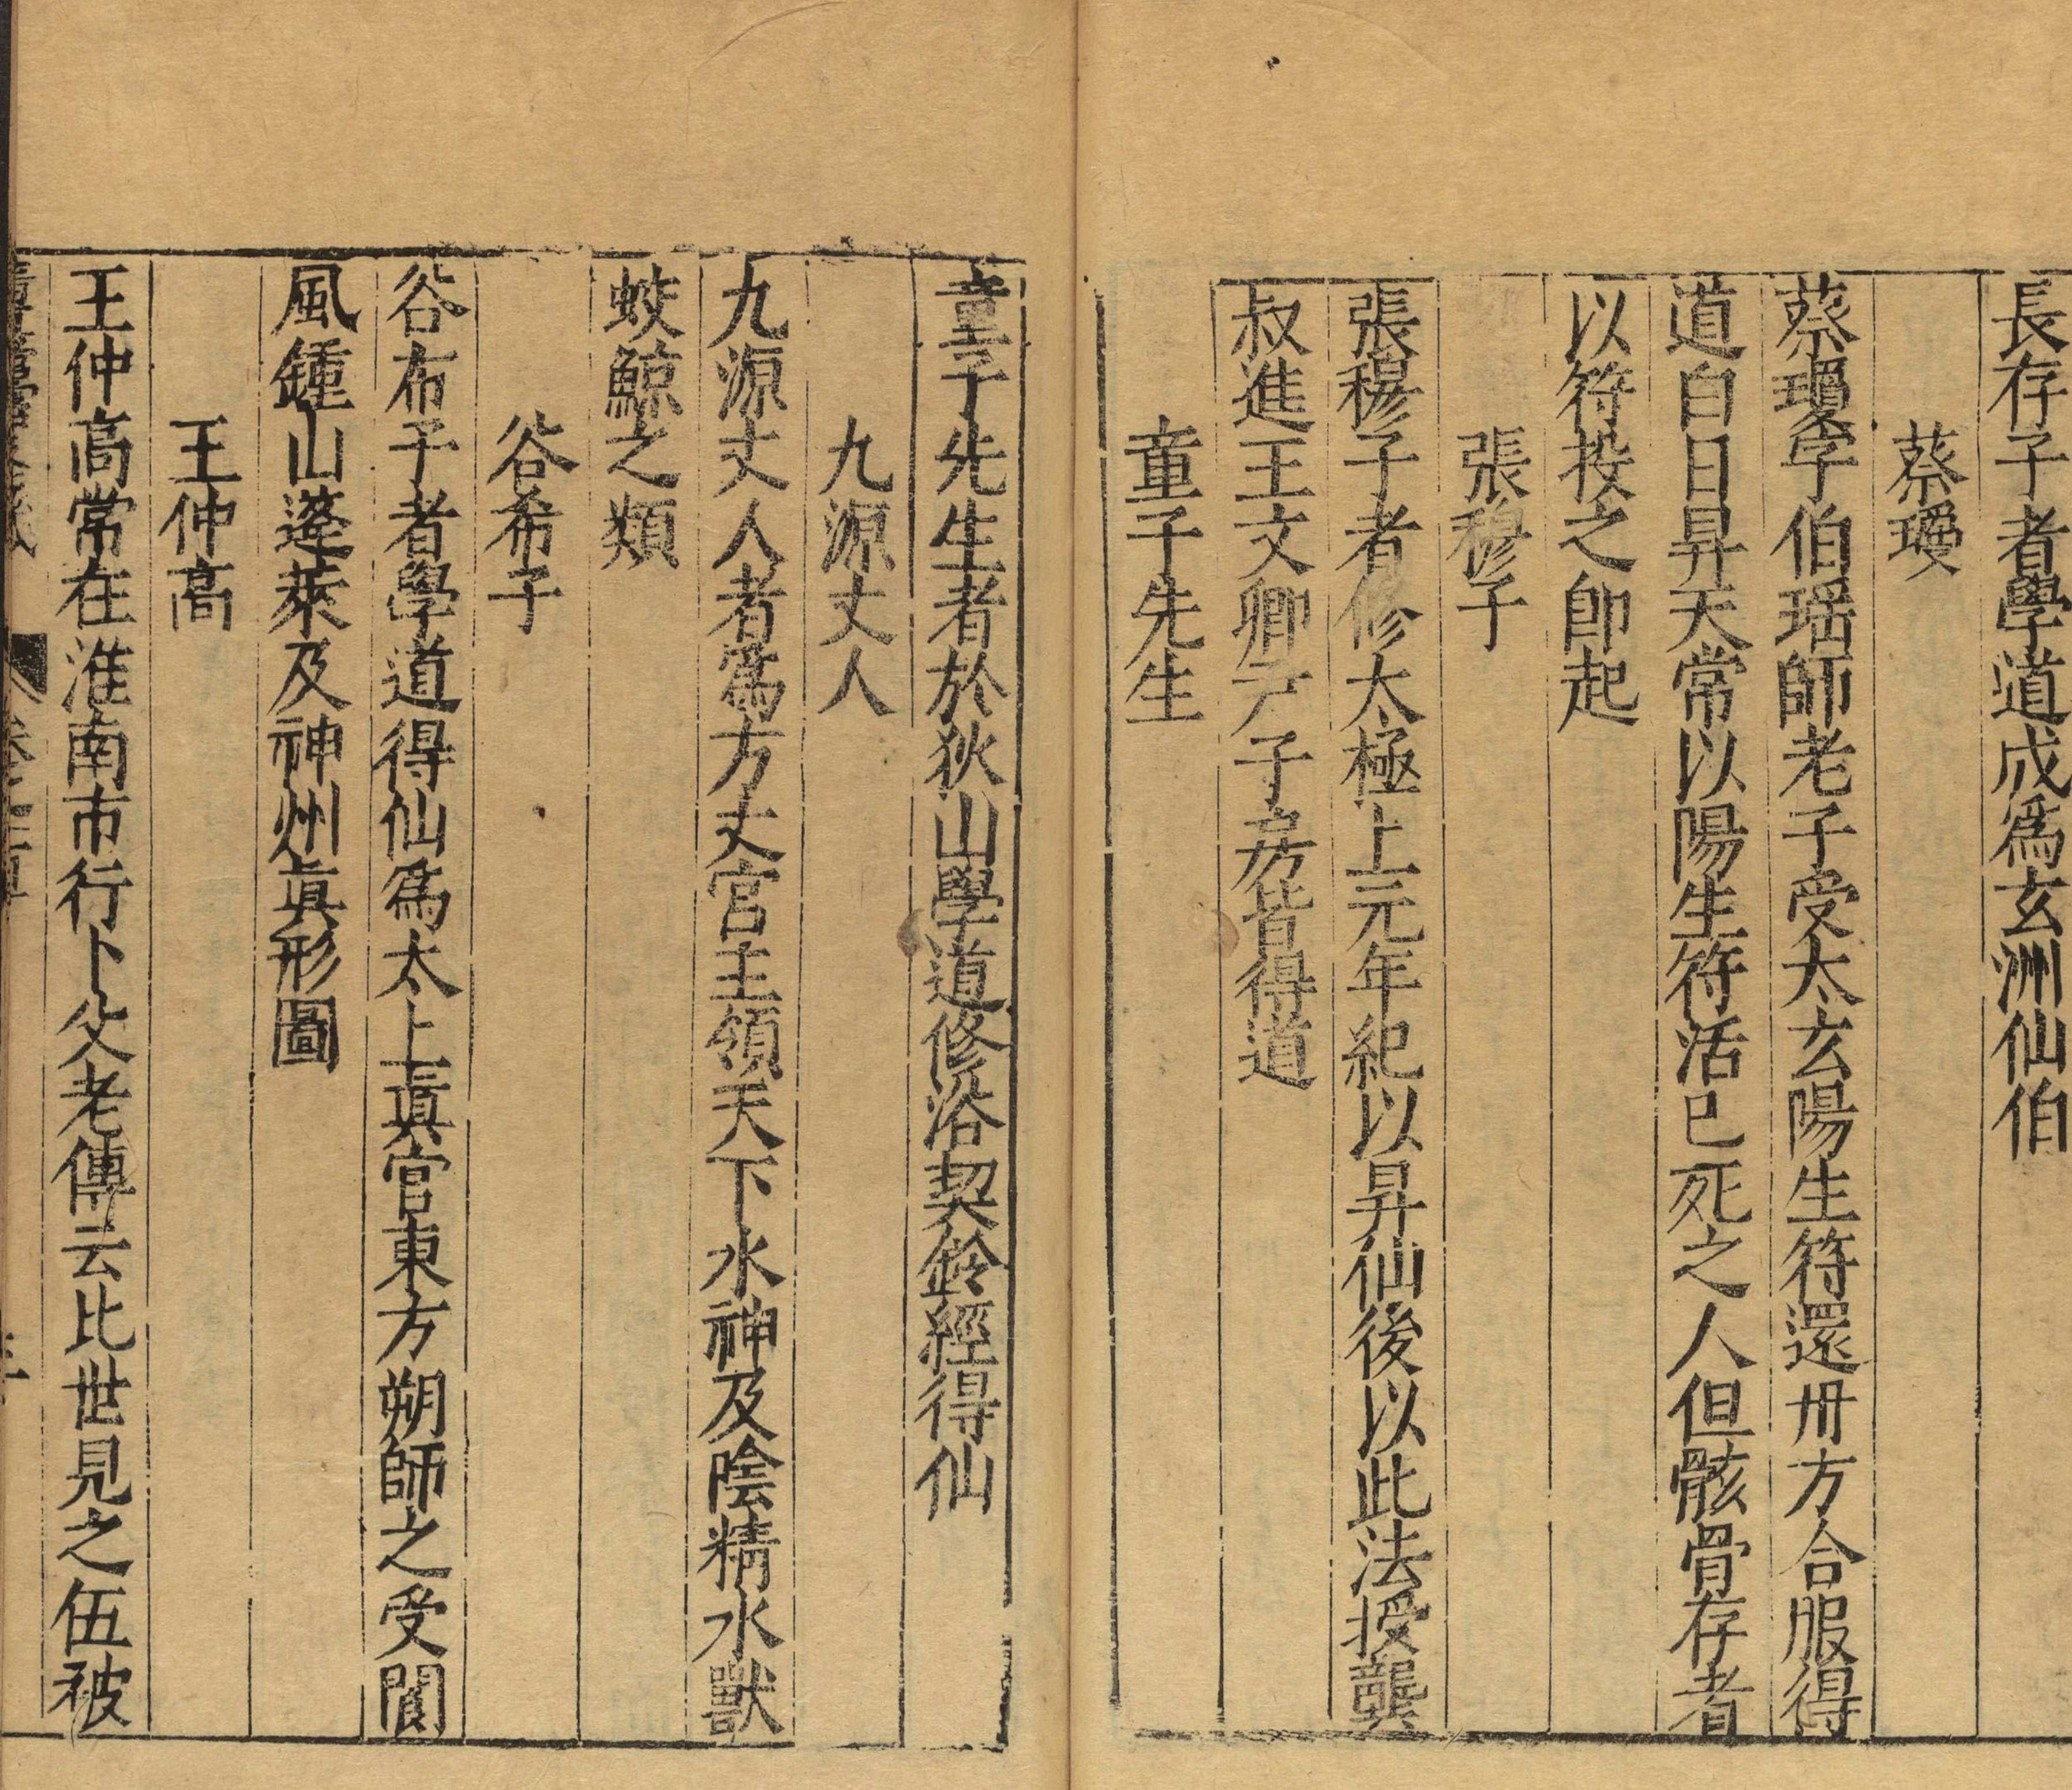 長存子者學道成爲玄洲仙伯
蔡瓊
蔡瓊字伯瑶師老子受太玄陽生符還丹方合服得
道白日昇天常以陽生符活巳死之人但骸骨存者
以符投之即起
張穆子
張穆子者修太極上元年紀以昇仙後以此法授龔
叔進王文卿尹子房皆得道
童子先生
童子先生者於狄山學道修浴契鈴經得仙
九源丈人
九源丈人者爲方丈宮主領天下水神及陰精水獸
蛟鯨之類
谷希子
谷布子者學道得仙爲太上眞官東方朔師之受閬
風鍾山蓬萊及神州眞形圖
王仲高
王仲高常在淮南市行卜父老傳云比世見之伍被